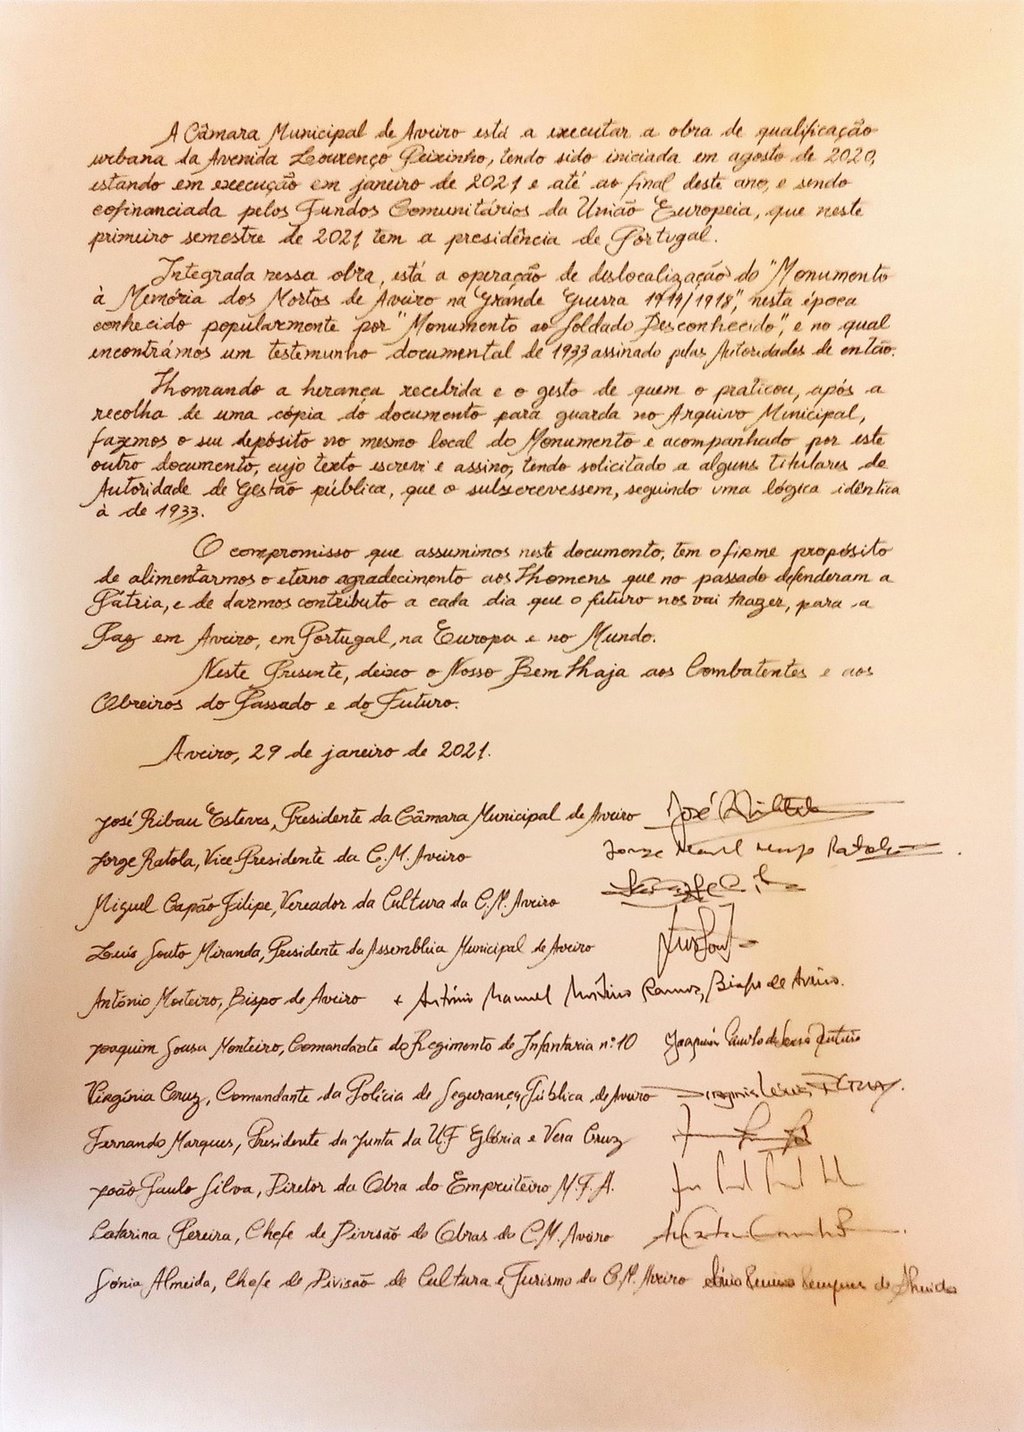 A Câmara Municipal de Aveiro está a executar a obra de qualificação
urbana da Avenida Lourenço Peixinho, tendo sido iniciada em agosto de 2020,
estando em execução em janeiro de 2021 e até ao final deste ano, e sendo
cofinanciada pelos Fundos Comunitários da União Europeia, que neste
primeiro semestre de 2021 tem a presidência de Portugal.
Integrada nessa obra, está a operação de deslocalização do "Monumento
à Memória dos Mortos de Aveiro na Grande Guerra 1914/1918", nesta época
conhecido popularmente por "Monumento ao Soldado Desconhecido", e no qual
encontrámos um testemunho documental de 1933 assinado pelas Autoridades de então.
Honrando a herança recebida e o gesto de quem o praticou, após a
recolha de uma cópia do documento para guarda no Arquivo Municipal,
fazemos o seu depósito no mesmo local do Monumento e acompanhado por este
outro documento, cujo texto escrevi e assino, tendo solicitado a alguns titulares de
Autoridade de Gestão pública, que o subscrevessem, seguindo uma lógica idêntica
à de 1933.
O compromisso que assumimos neste documento, tem o firme propósito
de alimentarmos o eterno agradecimento aos Homens que no passado defenderam a
Pátria, e de darmos contributo a cada dia que o futuro nos vai trazer, para a
Paz em Aveiro, em Portugal, na Europa e no Mundo.
Neste Presente, deixo o Nosso Bem Haja aos Combatentes e aos
Obreiros do Passado e do Futuro.
Aveiro, 29 de janeiro de 2021.
José Ribau Esteves, Presidente da Câmara Municipal de Aveiro José
Jorge Ratola, Vice-Presidente da C.M. Aveiro Jorge Manuel Ratola
Miguel Capão Filipe, Vereador da Cultura da C.M. Aveiro
Luís Souto Miranda, Presidente da Assembleia Municipal de Aveiro
António Moiteiro, Bispo de Aveiro + António Manuel Moiteiro Ramos, Bispo de Aveiro.
Joaquim Sousa Monteiro, Comandante do Regimento de Infantaria nº 10 Joaquim
Virgínia Cruz, Comandante da Polícia de Segurança Pública de Aveiro Virgínia Cruz
Fernando Marques, Presidente da Junta da U.F Glória e Vera Cruz
João Paulo Silva, Diretor da Obra do Empreiteiro M.F.A.
Catarina Pereira, Chefe de Divisão de Obras da C.M. Aveiro
Sónia Almeida, Chefe de Divisão de Cultura e Turismo da C.M. Aveiro Sónia de Almeida